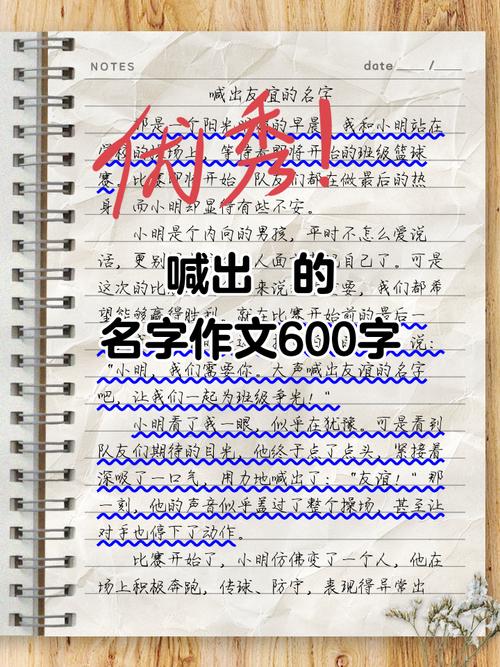 NOTES
date /
喊出友谊的名字
优秀！
那是一个阳光的早晨，我和小明站在
学校的场上，等待着即将开始的班级篮球
赛。比赛即将开始，队友们都在做最后的热
身，而小明却显得有些不安。
小明是个内向的男孩，平时不怎么爱说
话，更别人面己了。可是
这次的比来说要，我们都希
望能够赢得胜利。就在比赛开始前的最后一
喊出 的
名字作文600字
说：
“小明，我们需要你。大声喊出友谊的名字
吧，让我们一起为班级争光！”
小明看了我一眼，似乎在犹豫。可是看到
队友们期待的目光，他终于点了点头，紧接着
深吸了一口气，用力地喊出了：“友谊！”那
一刻，他的声音似乎盖过了整个操场，甚至让
对手也停下了动作。
比赛开始了，小明仿佛变了一个人，他在
场上积极奔跑，传球、防守，表现得异常出